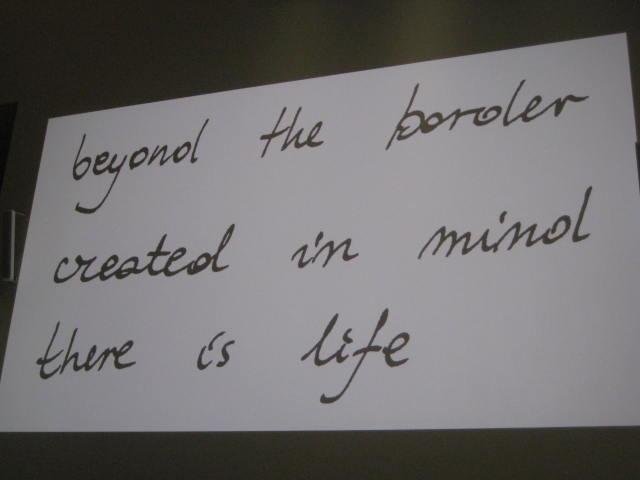 beyond the border
created in mind
there is life